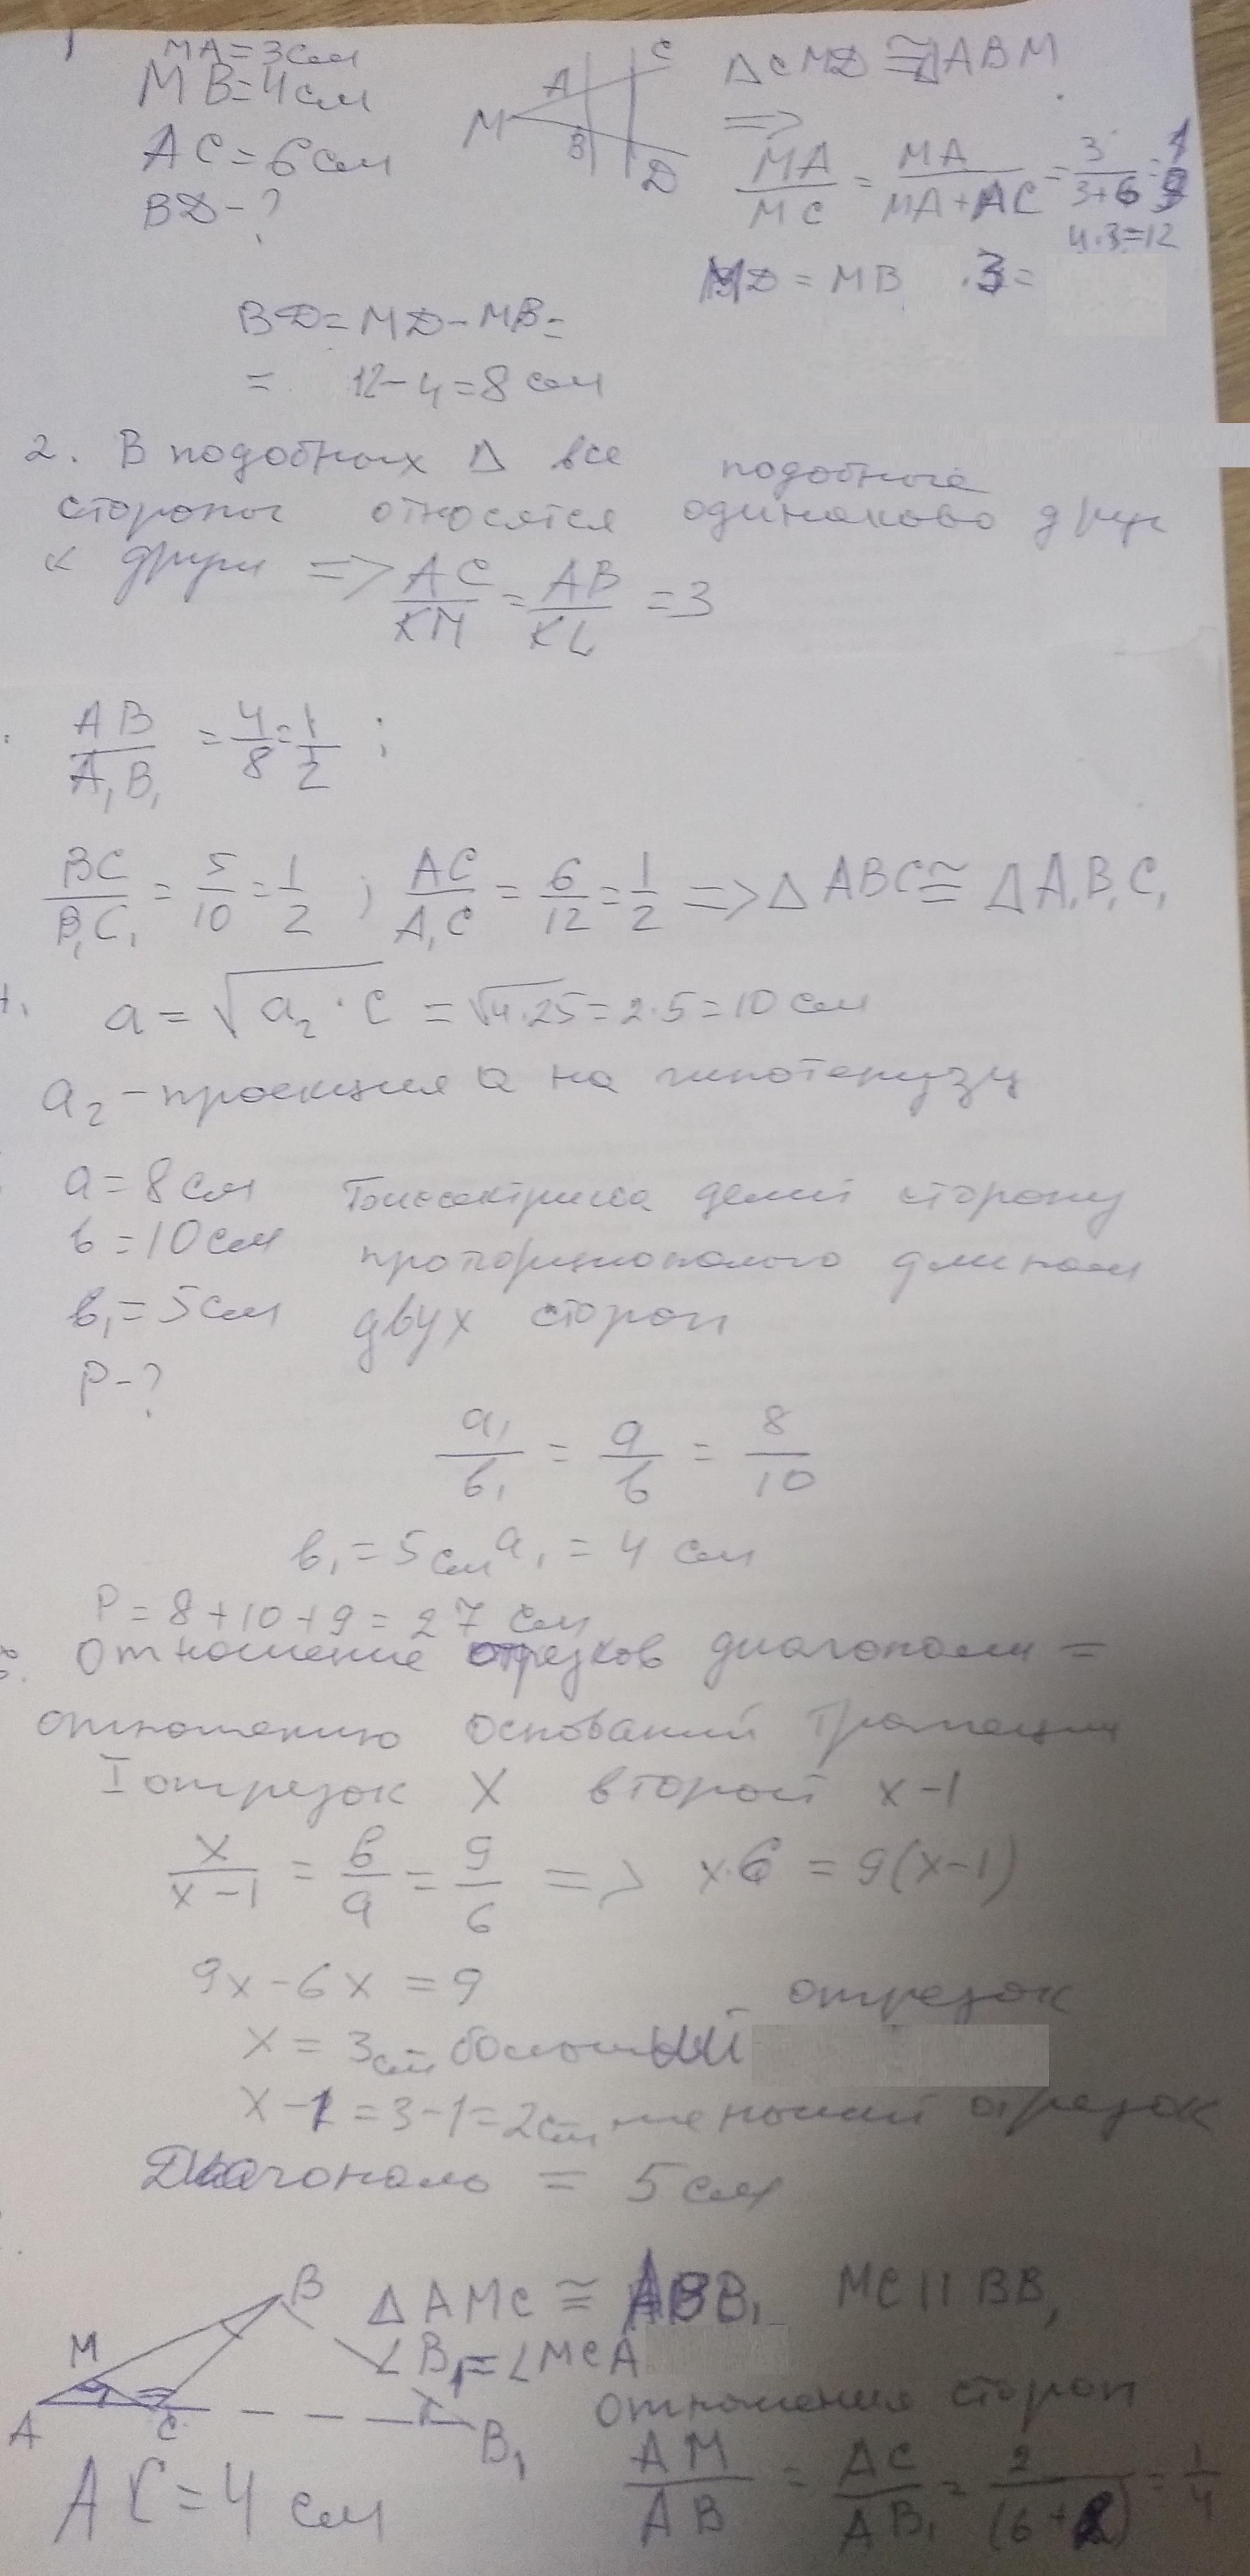 1
MA=3см
MB=4см
AC=6см
BD-?
M A C B D
△CMD ≅ △ABM
=>
MA/MC = MA/(MA+AC) = 3/(3+6) = 1/3
4·3=12
MD = MB ·3=
BD=MD-MB=
= 12-4=8см
2. В подобных △ все подобные
стороны относятся одинаково друг
к другу => AC/KM = AB/KL =3
AB/A₁B₁ = 4/8 = 1/2 ;
BC/B₁C₁ = 5/10 = 1/2 ; AC/A₁C = 6/12 = 1/2 => △ABC ≅ △A₁B₁C₁
a = √(a₂·c) = √4·25 = 2·5=10см
a₂ - проекция a на гипотенузу
a=8см Биссектриса делит сторону
b=10см пропорционально длинам
b₁=5см двух сторон
P-?
a₁/b₁ = a/b = 8/10
b₁=5см a₁=4 см
P=8+10+9=27 см
Отношение отрезков диагонали =
отношению оснований трапеции
I отрезок X второй x-1
x/(x-1) = b/a = 9/6 => x·6 = 9(x-1)
9x-6x=9
x = 3см больший отрезок
x-1=3-1=2см меньший отрезок
Диагональ = 5см
A M B C B₁
△AMC ≅ ABB₁ MC || BB₁
∠B₁=∠MCA
отношения сторон
AM/AB = AC/AB₁ = 2/(6+2) = 1/4
AC=4 см